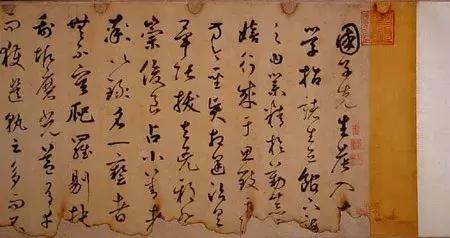 國子先生晨入太
學招諸生立館下誨
之曰業精於勤荒
嬉行成于思毀于
聖賢相逢治具
畢張拔去兇邪
崇俊良占小善者
率以錄名一藝者
無不庸爬羅剔抉
刮垢磨光蓋有幸
而獲選孰云多而不